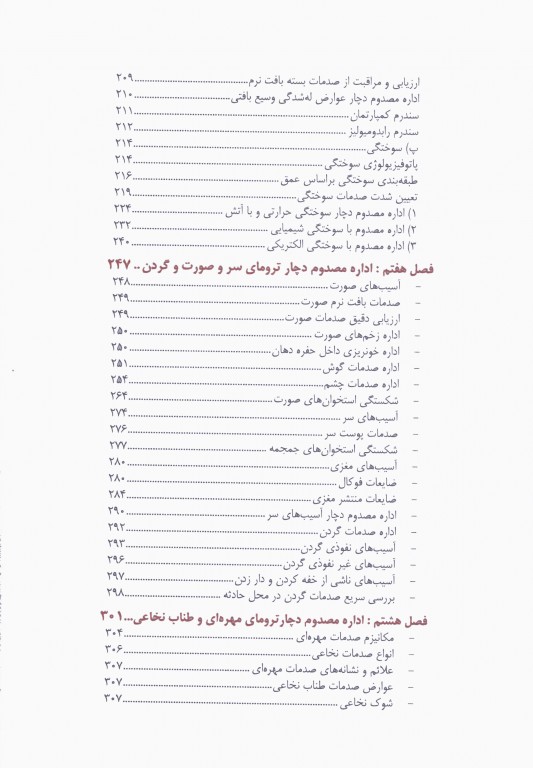 ارزیابی و مراقبت از صدمات بسته بافت نرم..........۲۰۹
اداره مصدوم دچار عوارض له‌شدگی وسیع بافتی..........۲۱۰
سندرم کمپارتمان..........۲۱۱
سندرم رابدومیولیز..........۲۱۲
پ) سوختگی..........۲۱۴
پاتوفیزیولوژی سوختگی..........۲۱۴
طبقه‌بندی سوختگی براساس عمق..........۲۱۶
تعیین شدت صدمات سوختگی..........۲۱۹
۱) اداره مصدوم دچار سوختگی حرارتی و با آتش..........۲۲۴
۲) اداره مصدوم با سوختگی شیمیایی..........۲۳۲
۳) اداره مصدوم با سوختگی الکتریکی..........۲۴۰
فصل هفتم : اداره مصدوم دچار ترومای سر و صورت و گردن .. ۲۴۷
- آسیب‌های صورت..........۲۴۸
- صدمات بافت نرم صورت..........۲۴۹
- ارزیابی دقیق صدمات صورت..........۲۴۹
- اداره زخم‌های صورت..........۲۵۰
- اداره خونریزی داخل حفره دهان..........۲۵۰
- اداره صدمات گوش..........۲۵۱
- اداره صدمات چشم..........۲۵۴
- شکستگی استخوان‌های صورت..........۲۶۴
- آسیب‌های سر..........۲۷۴
- صدمات پوست سر..........۲۷۶
- شکستگی استخوان‌های جمجمه..........۲۷۷
- آسیب‌های مغزی..........۲۸۰
- ضایعات فوکال..........۲۸۰
- ضایعات منتشر مغزی..........۲۸۴
- اداره مصدوم دچار آسیب‌های سر..........۲۹۰
- اداره صدمات گردن..........۲۹۲
- آسیب‌های نفوذی گردن..........۲۹۳
- آسیب‌های غیر نفوذی گردن..........۲۹۶
- آسیب‌های ناشی از خفه کردن و دار زدن..........۲۹۷
- بررسی سریع صدمات گردن در محل حادثه..........۲۹۸
فصل هشتم : اداره مصدوم دچارترومای مهره‌ای و طناب نخاعی...۳۰۱
- مکانیزم صدمات مهره‌ای..........۳۰۴
- انواع صدمات نخاعی..........۳۰۶
- علائم و نشانه‌های صدمات مهره‌ای..........۳۰۷
- عوارض صدمات طناب نخاعی..........۳۰۷
- شوک نخاعی..........۳۰۷